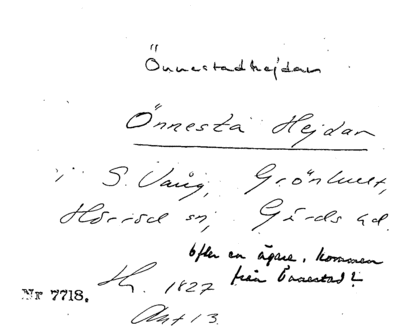 Önnestadhejdan
Önnesta Hejdan
i S. Vång, Grönhult,
Hörröd sn, Gärds hd.
efter en ägare, kommen
från Önnestad?
1827
Nr 7718.
Akt 13.